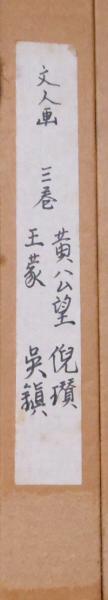 文人画 三巻
黄公望 倪瓚
王蒙 吳鎮